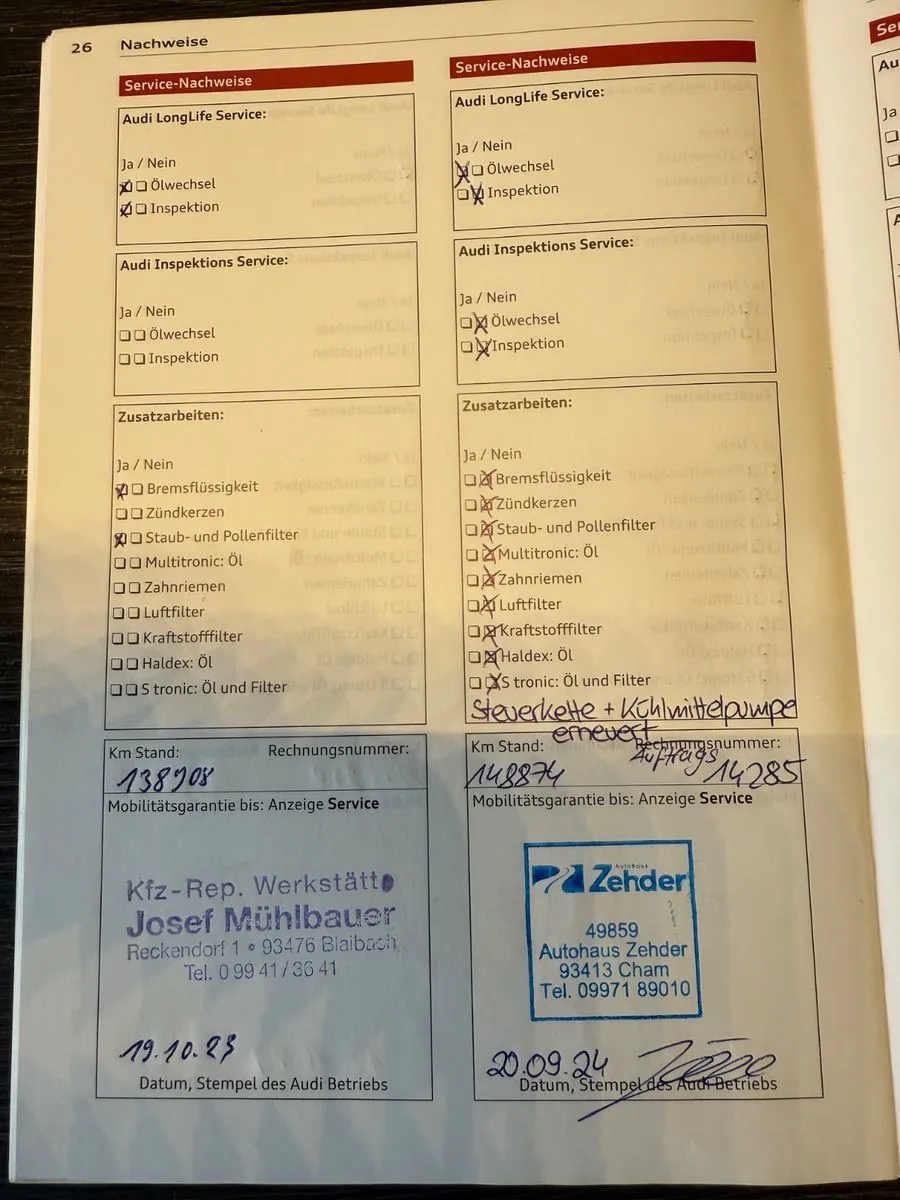 26 Nachweise
Service-Nachweise
Audi LongLife Service:
Ja / Nein
Ölwechsel
Inspektion
Audi Inspektions Service:
Ja / Nein
Ölwechsel
Inspektion
Zusatzarbeiten:
Ja / Nein
Bremsflüssigkeit
Zündkerzen
Staub- und Pollenfilter
Multitronic: Öl
Zahnriemen
Luftfilter
Kraftstofffilter
Haldex: Öl
S tronic: Öl und Filter
Km Stand: Rechnungsnummer:
138908
Mobilitätsgarantie bis: Anzeige Service
Kfz-Rep. Werkstätte
Josef Mühlbauer
Reckendorf 1 • 93476 Blaibach
Tel. 0 99 41 / 36 41
19.10.23
Datum, Stempel des Audi Betriebs
Service-Nachweise
Audi LongLife Service:
Ja / Nein
Ölwechsel
Inspektion
Audi Inspektions Service:
Ja / Nein
Ölwechsel
Inspektion
Zusatzarbeiten:
Ja / Nein
Bremsflüssigkeit
Zündkerzen
Staub- und Pollenfilter
Multitronic: Öl
Zahnriemen
Luftfilter
Kraftstofffilter
Haldex: Öl
S tronic: Öl und Filter
Steuerkette + Kühlmittelpumpe
erneuert
Km Stand: Rechnungsnummer:
Auftrags
148874 14285
Mobilitätsgarantie bis: Anzeige Service
Autohaus
Zehder
49859
Autohaus Zehder
93413 Cham
Tel. 09971 89010
20.09.24
Datum, Stempel des Audi Betriebs